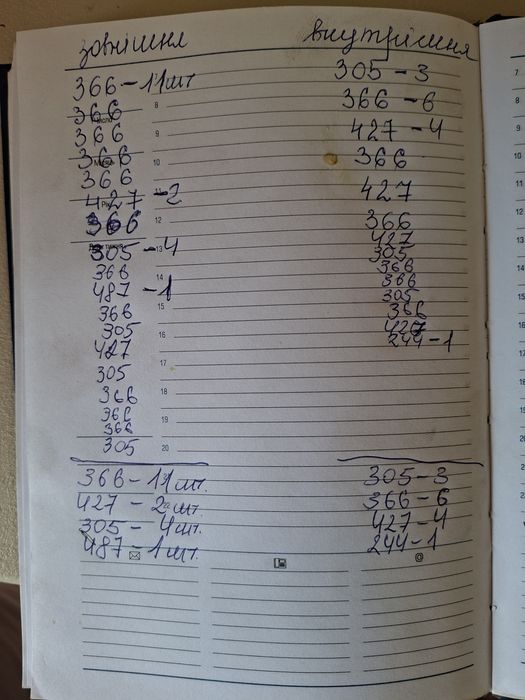 зовнішня
366 - 11 шт
366
366
366
366
427 - 2
366
305 - 4
366
487 - 1
366
305
427
305
366
366
366
305
366 - 11 шт.
427 - 2 шт.
305 - 4 шт.
487 - 1 шт.
внутрішня
305 - 3
366 - 6
427 - 4
366
427
366
427
305
366
366
305
366
427
244 - 1
305 - 3
366 - 6
427 - 4
244 - 1
8
9
10
11
12
13
14
15
16
17
18
19
20